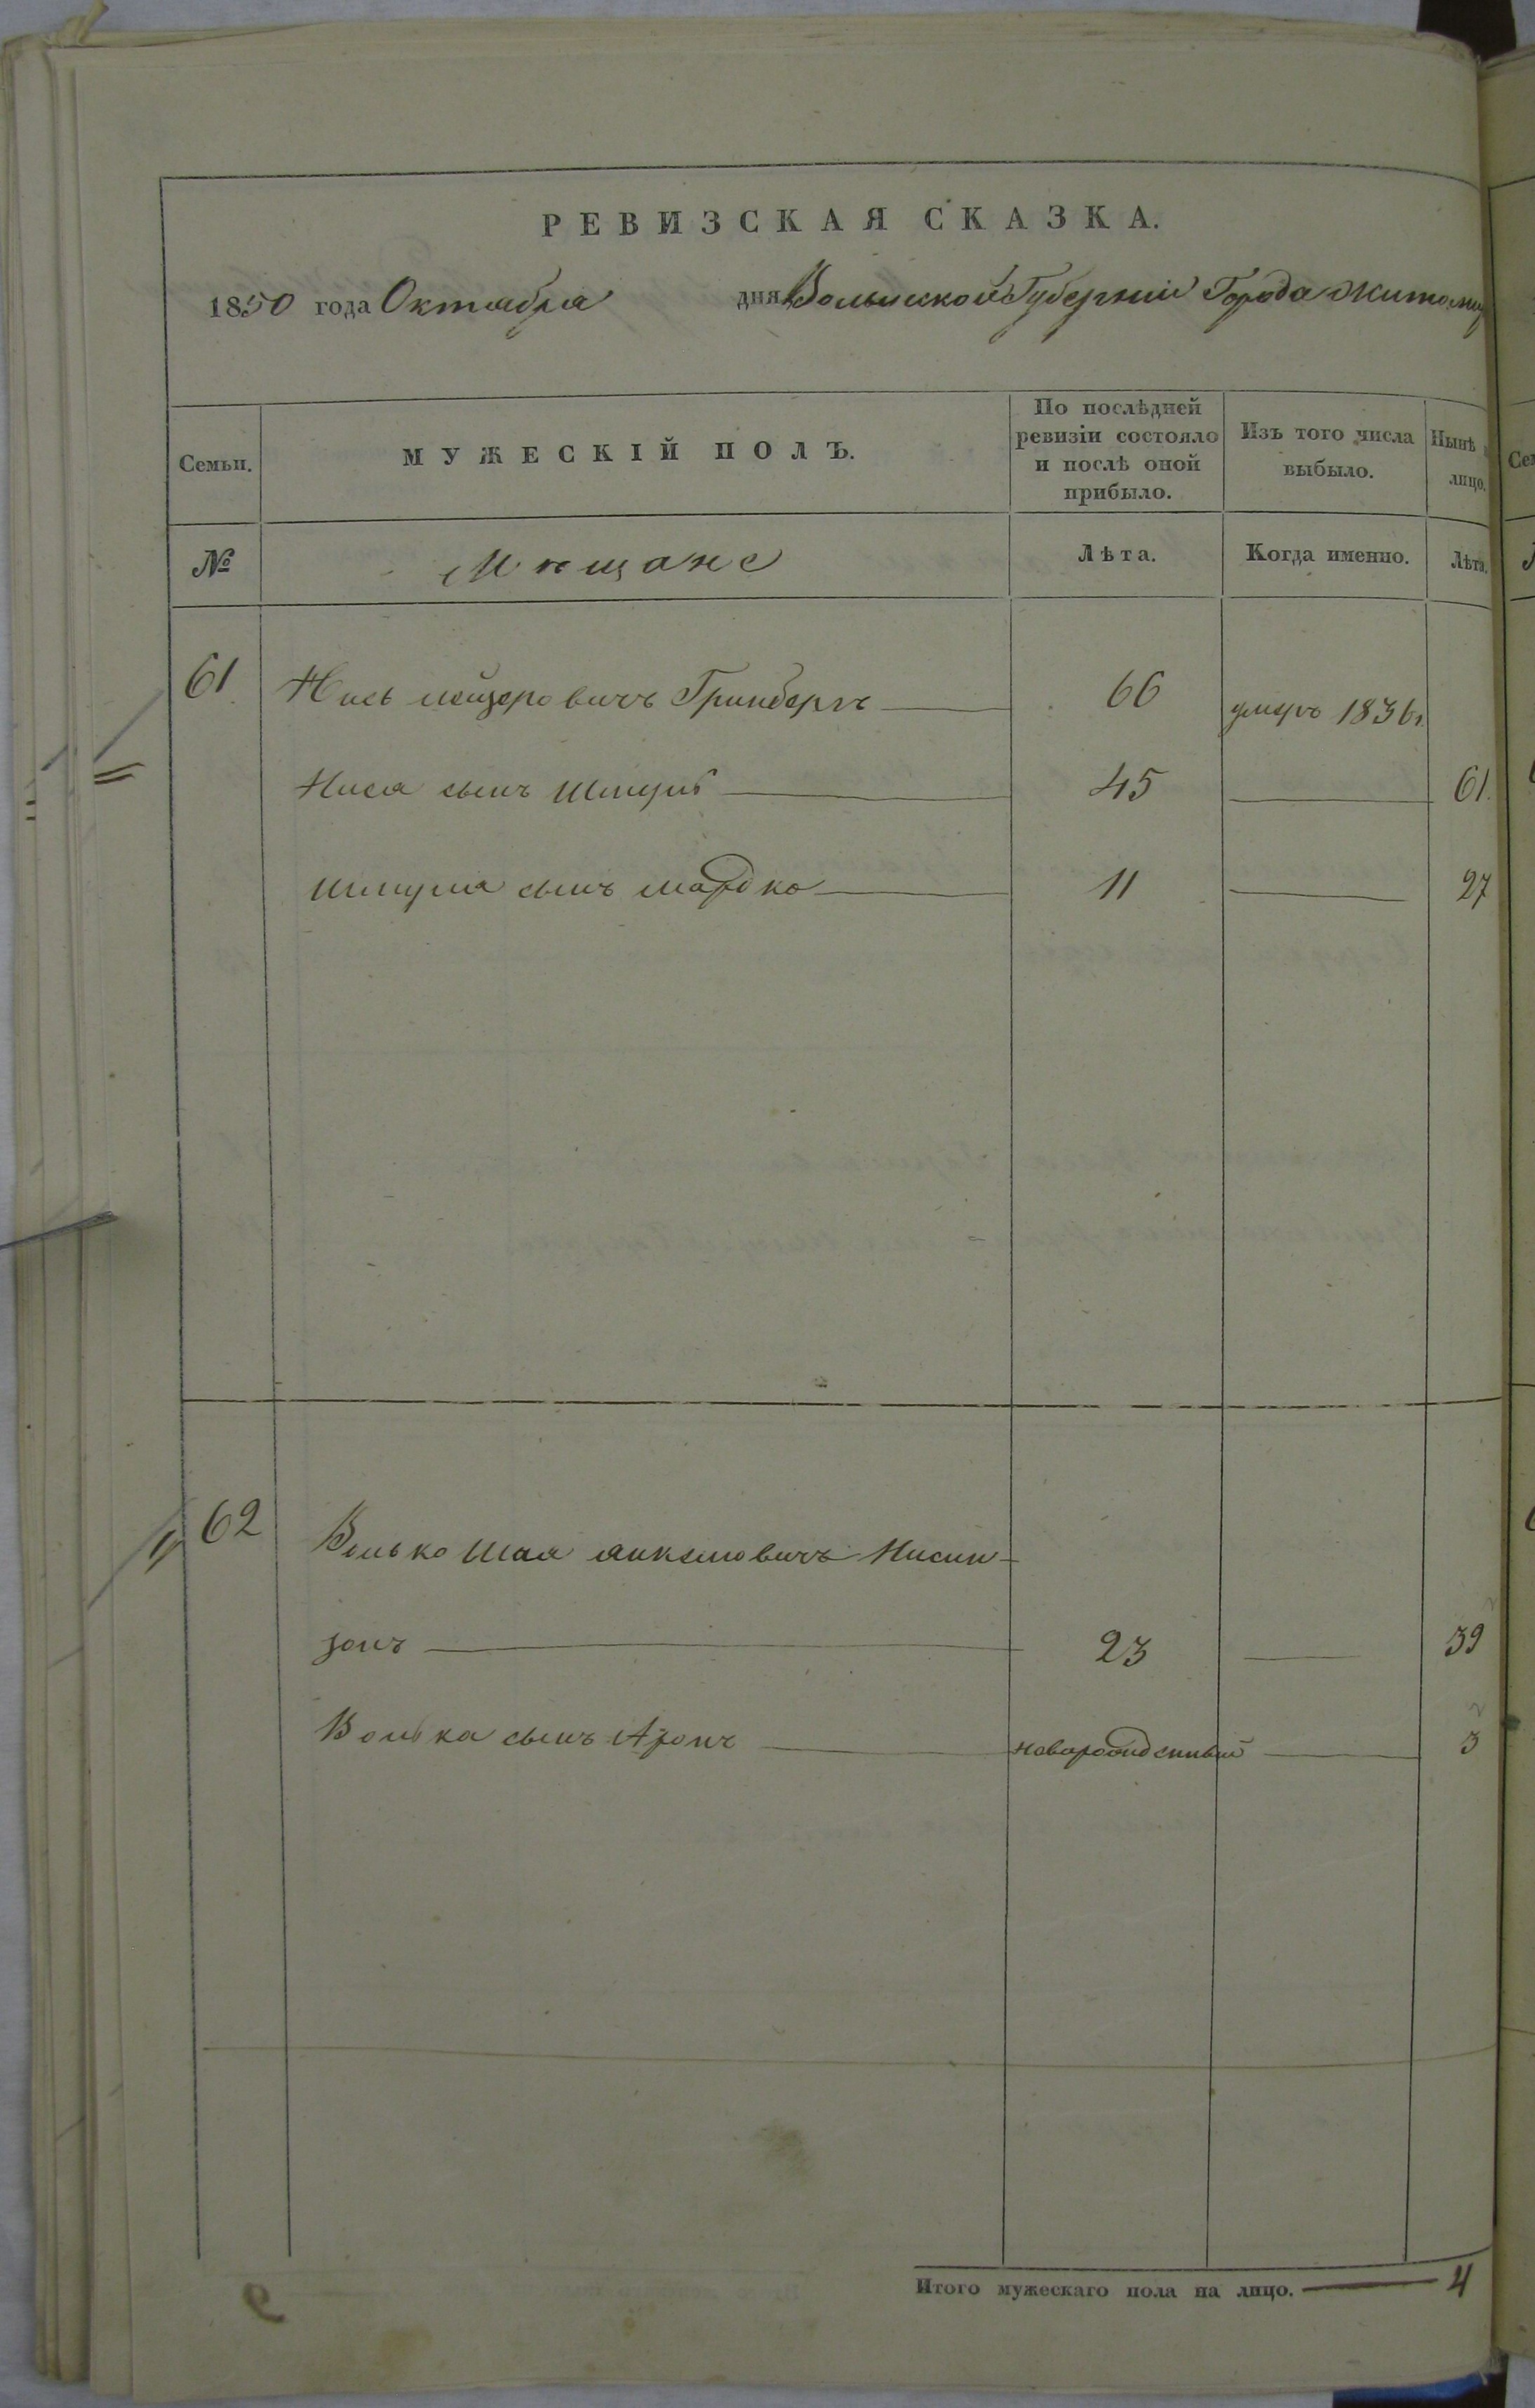 РЕВИЗСКАЯ СКАЗКА.
1850 года Октября дня Волынской Губерніи Города Житомир
Семьи.
МУЖЕСКІЙ ПОЛЪ.
По послѣдней
ревизіи состояло
и послѣ оной
прибыло.
Изъ того числа
выбыло.
Нынѣ
лицо.
№
Мѣщане
Лѣта.
Когда именно.
Лѣта.
61 Нись Лейзеровичъ Гринбергъ 66 умеръ 1836 г.
Нися сынъ Шмуль 45 61.
Шмуля сынъ Мордко 11 27
62 Волько Шая Янкелевичъ Нисин-
зонъ 23 39
Волька сынъ Аронъ новорожденный 3
Итого мужескаго пола на лицо. 4